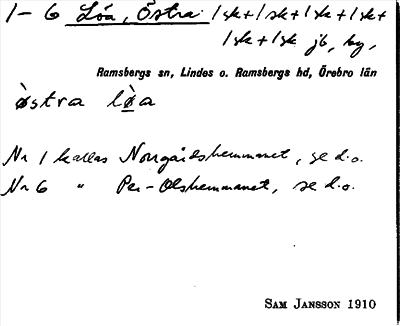 1-6 Löa, Östra 1 sk+1 sk+1 sk+1 sk+
1 sk+1 sk jb, by,
Ramsbergs sn, Lindes o. Ramsbergs hd, Örebro län
östra löa
Nr 1 kallas Norrgårdshemmanet, se d.o.
Nr 6 " Per-Olshemmanet, se d.o.
SAM JANSSON 1910